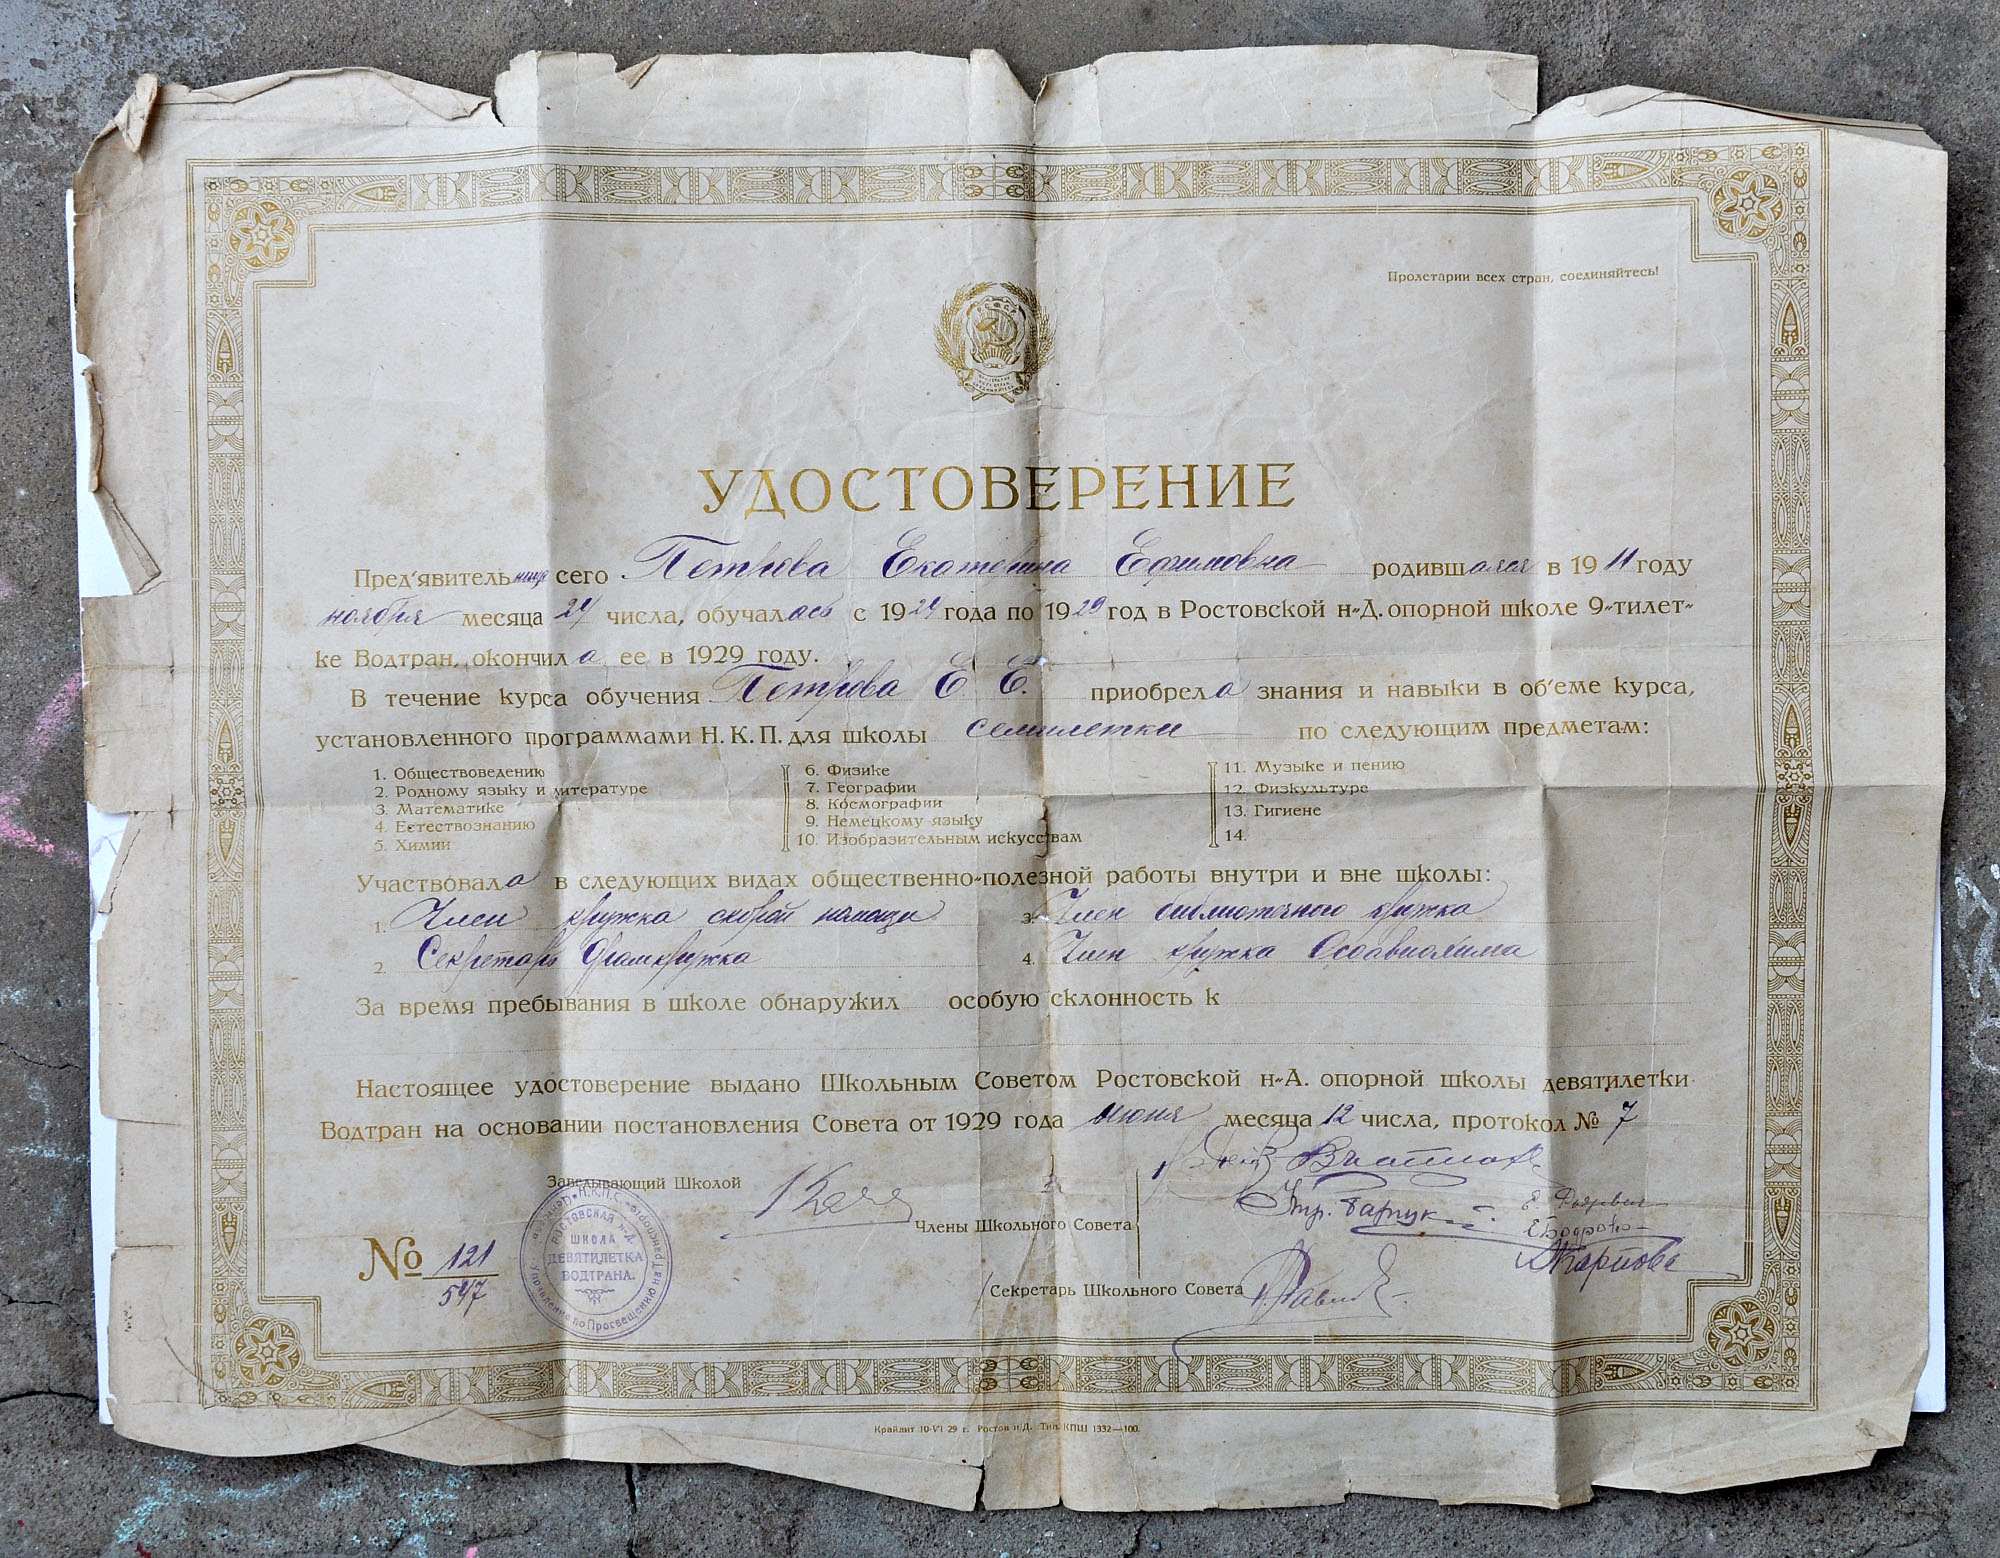 Пролетарии всех стран, соединяйтесь!
УДОСТОВЕРЕНИЕ
Пред'явительнице сего Петрова Екатерина Ефимовна родившаяся в 1911 году
ноября месяца 24 числа, обучалась с 1924 года по 1929 год в Ростовской н-Д. опорной школе 9-тилет-
ке Водтран, окончила ее в 1929 году.
В течение курса обучения Петрова Е. Е. приобрела знания и навыки в об'еме курса,
установленного программами Н. К. П. для школы семилетки по следующим предметам:
1. Обществоведению
2. Родному языку и литературе
3. Математике
4. Естествознанию
5. Химии
6. Физике
7. Географии
8. Космографии
9. Немецкому языку
10. Изобразительным искусствам
11. Музыке и пению
12. Физкультуре
13. Гигиене
14.
Участвовала в следующих видах общественно-полезной работы внутри и вне школы:
1. Член кружка скорой помощи
2. Секретарь драмкружка
3. Член библиотечного кружка
4. Член кружка Осоавиахима
За время пребывания в школе обнаружил особую склонность к
Настоящее удостоверение выдано Школьным Советом Ростовской н-Д. опорной школы девятилетки
Водтран на основании постановления Совета от 1929 года июня месяца 12 числа, протокол № 7
Заведывающий Школой
Члены Школьного Совета
Секретарь Школьного Совета
№ 121
547
РОСТОВСКАЯ н-Д.
ШКОЛА
ДЕВЯТИЛЕТКА
ВОДТРАНА.
Карпова
Крайлит 10-VI 29 г. Ростов н/Д. Тип. КПШ 1332—100.